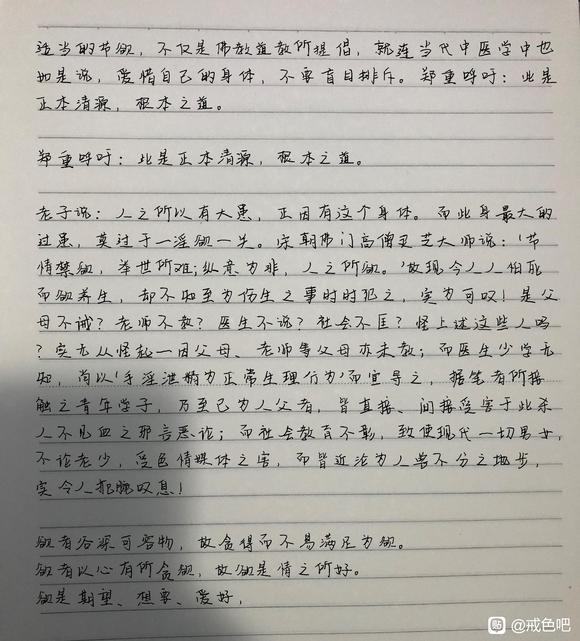 适当的节欲，不仅是佛教道教所提倡，就连当代中医学中也
如是说，爱惜自己的身体，不要盲目排斥。郑重呼吁：此是
正本清源，根本之道。
郑重呼吁：此是正本清源，根本之道。
老子说：人之所以有大患，正因有这个身体。而此身最大的
过患，莫过于一淫欲一失。宋朝佛门高僧灵芝大师说：‘节
情禁欲，举世所难；纵意为非，人之所欲。’故现今人人怕死
而欲养生，却不知至为伤生之事时时犯之，实为可叹！是父
母不诫？老师不教？医生不说？社会不匡？怪上述这些人吗
？实无从怪起一因父母、老师等父母亦未教；而医生少学无
知，尚以‘手淫泄精为正常生理行为’而宣导之，据笔者所接
触之青年学子，乃至已为人父者，皆直接、间接受害于此杀
人不见血之邪言恶论；而社会教育不彰，致使现代一切男女，
不论老少，受色情媒体之害，而皆近沦为人兽不分之地步，
实令人扼腕叹息！
欲者谷深可容物，故贪得而不易满足为欲。
欲者以心有所贪欲，故欲是情之所好。
欲是期望、想要、爱好，
贴 @戒色吧